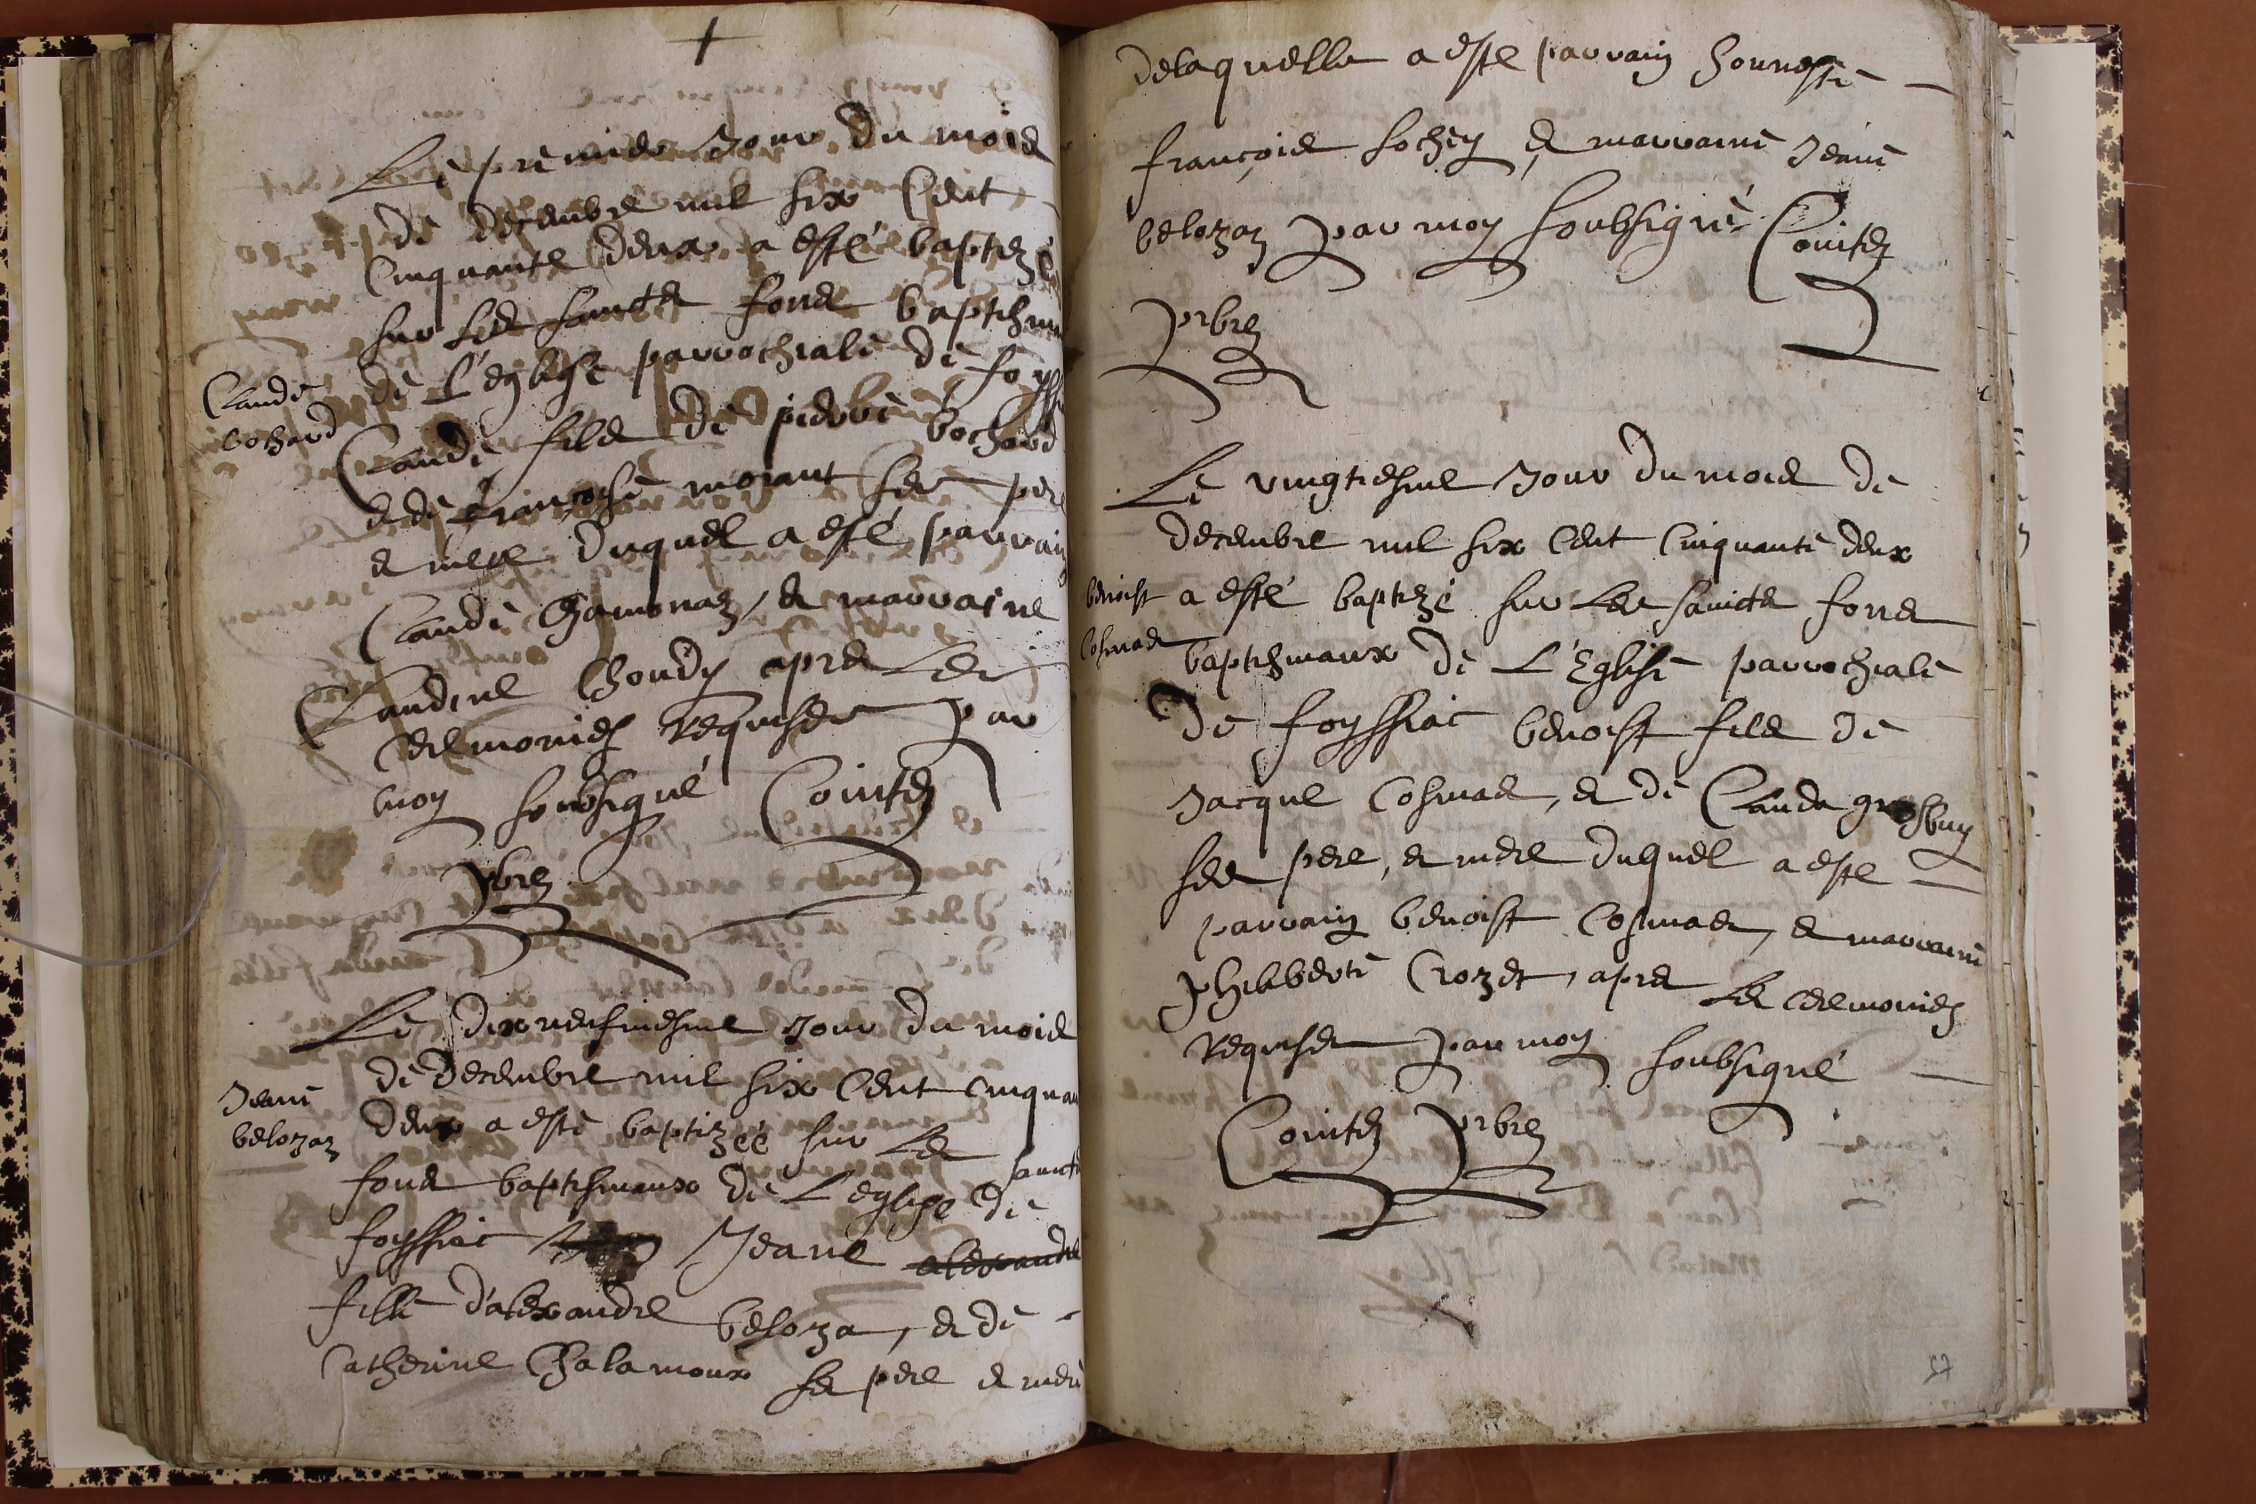 Le premier Jour du mois
de decembre mil six Cent
Cinquante deux a esté baptizé
sur les saincts fons baptisma
de L'eglise parrochiale de foyssi
Claude
bochard
Claude fils de pierre bochard
et de françoise morant ses pere
et mere duquel a esté parrain
Claude Chamonaz, et marraine
Claudine Choudy apres Les
ceremonies requises par
moy soubsigné Cointez
pbre
Le dixneufviesme Jour du mois
de Decembre mil six Cent cinquan
Jeane
belozaz
deux a esté baptizéé sur Les saincts
fons baptismaux de L'eglise de
foyssiac Jeane alexandre
fille d'alexandre beloza, et de
Catherine Chalamoux ses pere et mere
delaquelle a este parrain honneste
françois sochey et marraine Jeane
belozaz par moy soubsigné Cointez
pbre
Le vingtiesme Jour du mois de
decembre mil six Cent Cinquante deux
benoist
Cosmas
a esté baptizé sur Les saincts fons
baptismaux de L'Eglise parrochiale
de foyssiac benoist fils de
Jacque Cosmas, et de Clauda grosbuy
ses pere, et mere duquel a este
parrain benoist Cosmas, et marraine
philiberte Crozet, apres Les ceremonies
requises par moy soubsigné
Cointez pbre
57